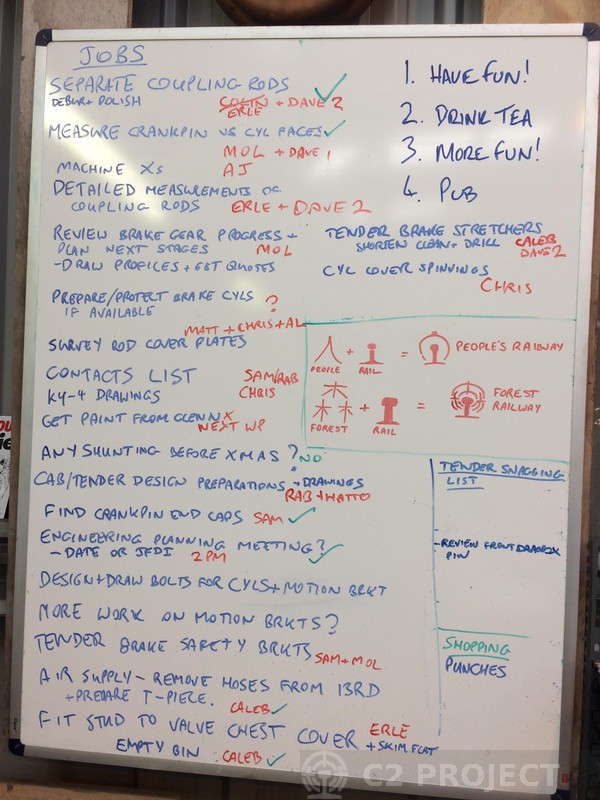 JOBS
SEPARATE COUPLING RODS ✓
DEBUR + POLISH COLIN + DAVE 2
ERLE
MEASURE CRANKPIN VS CYL FACES ✓
MOL + DAVE 1
MACHINE XS AJ
DETAILED MEASUREMENTS OF
COUPLING RODS ERLE + DAVE 2
REVIEW BRAKE GEAR PROGRESS +
PLAN NEXT STAGES MOL
- DRAW PROFILES + GET QUOTES
PREPARE/PROTECT BRAKE CYLS ?
IF AVAILABLE
MATT + CHRIS + AL
SURVEY ROD COVER PLATES
CONTACTS LIST SAM/RAB
K4-4 DRAWINGS CHRIS
GET PAINT FROM GLENN X
NEXT WP
ANY SHUNTING BEFORE XMAS? NO
CAB/TENDER DESIGN PREPARATIONS + DRAWINGS
RAB + MATTO
FIND CRANKPIN END CAPS SAM ✓
ENGINEERING PLANNING MEETING?
- DATE OR JFDI 2PM ✓
DESIGN + DRAW BOLTS FOR CYLS + MOTION BRKT
MORE WORK ON MOTION BRKTS?
TENDER BRAKE SAFETY BRKTS
SAM + MOL
AIR SUPPLY - REMOVE HOSES FROM 13RD
+ PREPARE T-PIECE.
CALEB ✓
FIT STUD TO VALVE CHEST COVER ERLE
+ SKIM FLAT
EMPTY BIN CALEB ✓
1. HAVE FUN!
2. DRINK TEA
3. MORE FUN!
4. PUB
TENDER BRAKE STRETCHERS
SHORTEN CLEAN + DRILL CALEB
DAVE 2
CYL COVER SPINNINGS
CHRIS
+ = PEOPLE'S RAILWAY
PEOPLE RAIL
+ = FOREST
RAILWAY
FOREST RAIL
TENDER SNAGGING
LIST
- REVIEW FRONT DRAWBOX
PIN
SHOPPING
PUNCHES
C2 PROJECT